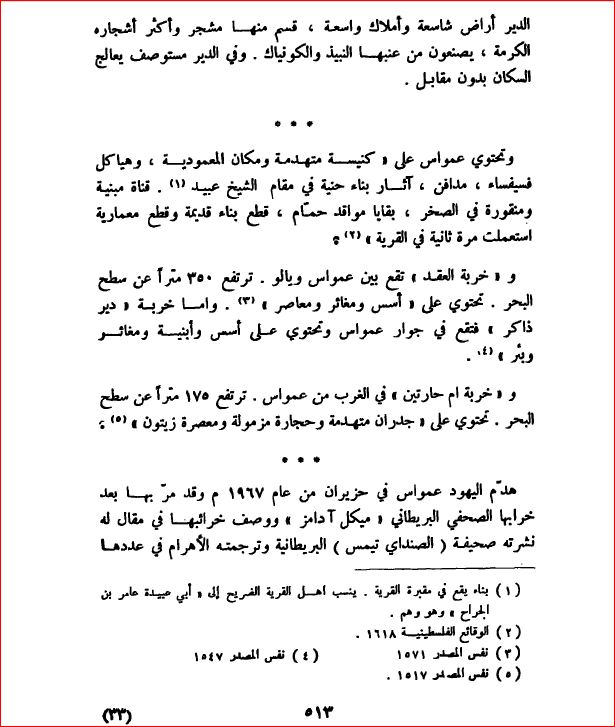 الدير أراض شاسعة وأملاك واسعة ، قسم منهـا مشجر وأكثر أشجاره
الكرمة ، يصنعون من عنبهـا النبيذ والكونياك . وفي الدير مستوصف يعالج
السكان بدون مقابل .
* * *
وتحتوي عمواس على « كنيسة متهدمة ومكان المعموديـة ، وهياكل
فسيفساء ، مدافن ، آثـار بناء حنية في مقام الشيخ عبيد (١) . قناة مبنية
ومنقورة في الصخر ، بقايا مواقد حمّام ، قطع بناء قديمة وقطع معمارية
استعملت مرة ثانية في القرية » (٢) .
و « خربة العقد » تقع بين عمواس ويالو . ترتفع ٣٥٠ متراً عن سطح
البحر . تحتوي على « أسس ومغائر ومعاصر » (٣) . واما خربة « دير
ذاكر » فتقع في جوار عمواس وتحتوي عـلى أسس وأبنيـة ومغائـر
وبئر » (٤) .
و « خربة ام حارتين » في الغرب من عمواس . ترتفع ١٧٥ متراً عن سطح
البحر . تحتوي على « جدران متهدمة وحجارة مزمولة ومعصرة زيتون » (٥) .
* * *
هدّم اليهود عمواس في حزيران من عام ١٩٦٧ م وقد مرّ بهـا بعد
خرابها الصحفي البريطاني « ميكل آدامز » ووصف خرائبهـا في مقال له
نشرته صحيفة ( الصنداي تيمس ) البريطانية وترجمته الأهرام في عددهـا
(١) بناء يقع في مقبرة القرية . ينسب اهـل القرية الضريح إلى « أبي عبيدة عامر بن
الجراح » وهو وهم .
(٢) الوقائع الفلسطينيـة ١٦١٨ .
(٣) نفس المصدر ١٥٧١ (٤) نفس المصدر ١٥٤٧
(٥) نفس المصدر ١٥١٧ .
٥١٣ (٣٣)